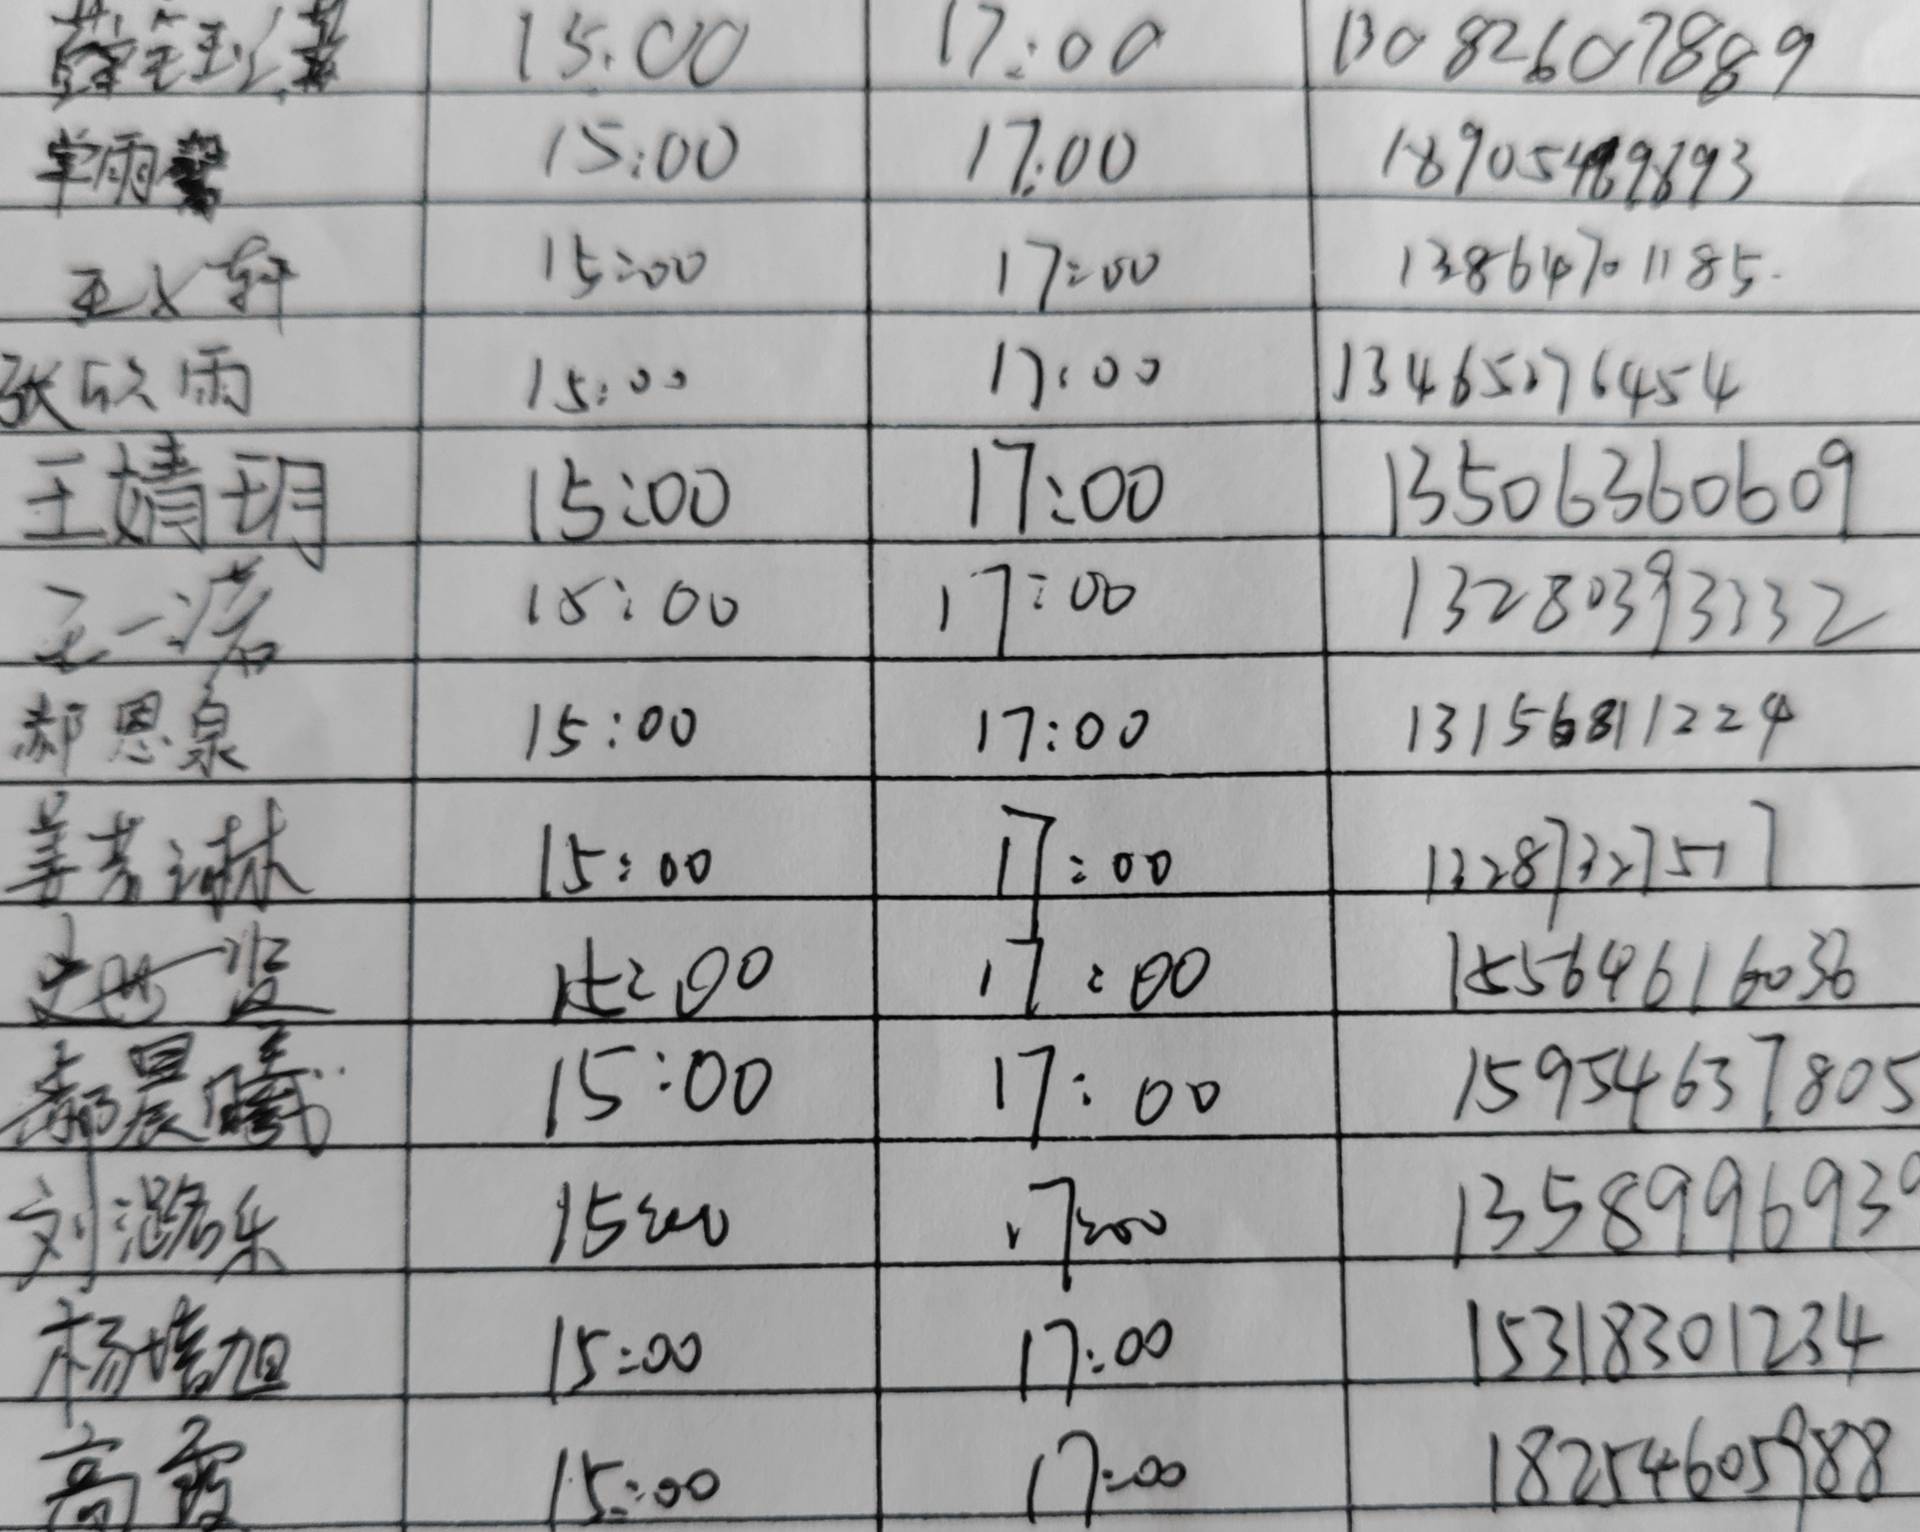 15:00 17:00 13082607889
雨馨 15:00 17:00
王义轩 15:00 17:00 13864701185
张欣雨 15:00 17:00 13465276454
王婧玥 15:00 17:00 13506360609
王一诺 15:00 17:00 13280393332
郝恩泉 15:00 17:00 13156811224
姜若琳 15:00 17:00 13287327517
15:00 17:00 15564616036
郝晨曦 15:00 17:00 15954637805
刘潞乐 15:00 17:00 1358996939
杨培旭 15:00 17:00 15318301234
高霞 15:00 17:00 18254605988